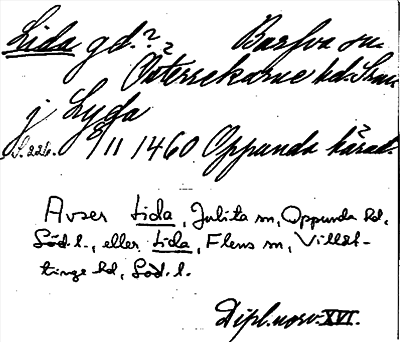 Lida gd.? ? Barfva sn.
Österrekarne hd. Skm
j Lyda
S. 226. 8/11 1460 Oppunda härad.
Avser Lida, Julita sn, Oppunda hd,
Söd. l., eller Lida, Flens sn, Villåt-
tinge hd, Söd. l.
Dipl. norv. XVI.